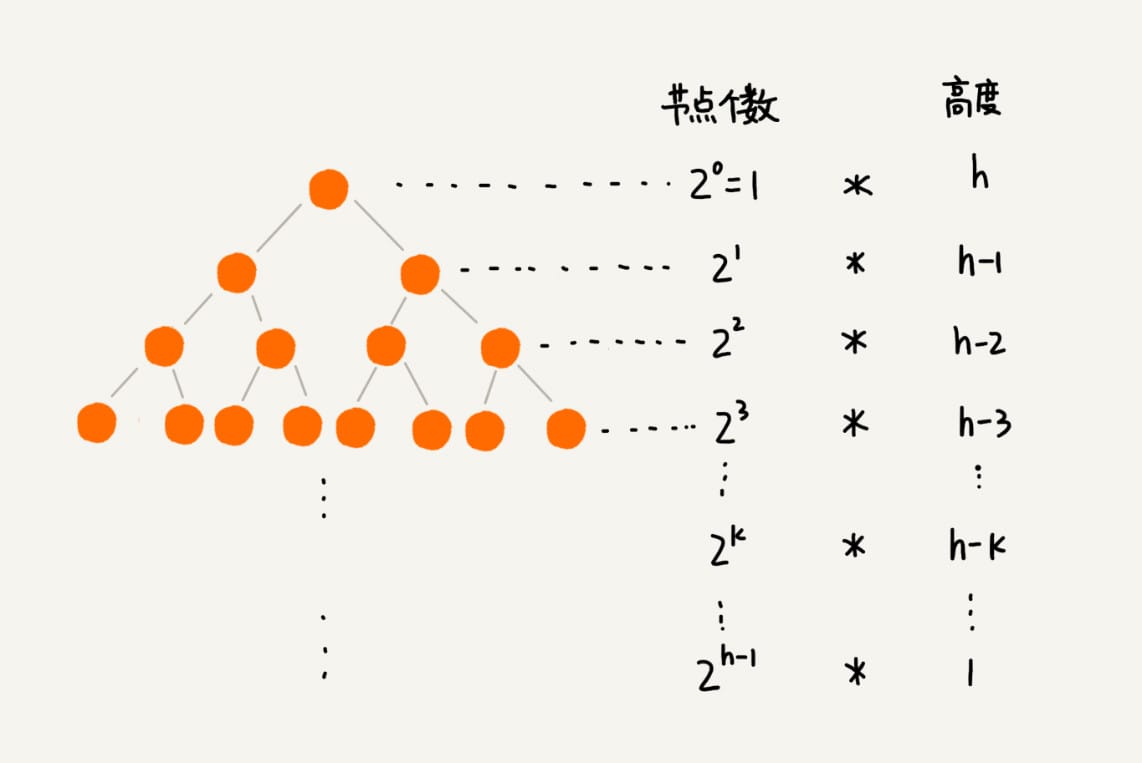 节点个数 高度
2⁰=1 * h
2¹ * h-1
2² * h-2
2³ * h-3
⋮ ⋮
2ᵏ * h-k
⋮ ⋮
2ʰ⁻¹ * 1